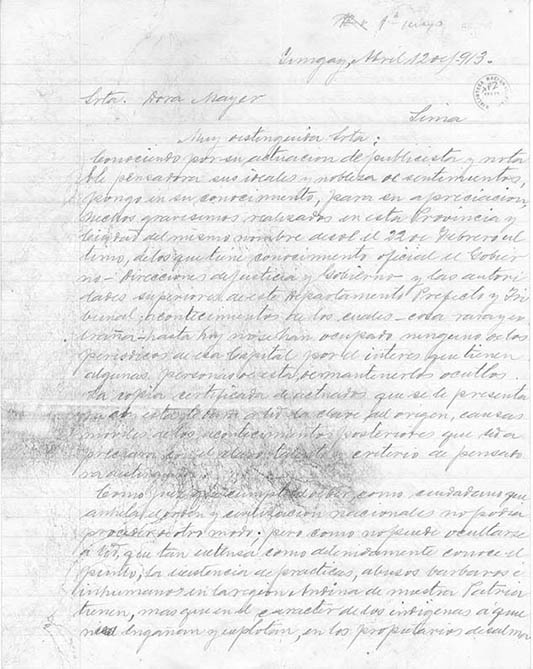 1º mayo
Yungay, Abril 12 de 1913.
Srta. Dora Mayer
Lima
Muy distinguida Srta:
Conociendo por su actuacion de publicista y nota
ble pensadora sus ideales y nobleza de sentimientos,
pongo en su conocimiento, para su apreciacion,
hechos gravisimos realizados en esta Provincia y
ciudad del mismo nombre desde el 22 de Febrero ul
timo, de los que tiene conocimiento oficial el Gobier
no - Direcciones de Justicia y Gobierno - y las autori
dades superiores de este Departamento Prefecto y Tri
bunal, acontecimientos de los cuales - cosa rara y ex
traña - hasta hoy no se han ocupado ninguno de los
periodicos de esa Capital por el interés que tienen
algunas personas de esta, de mantenerlos ocultos.
La copia certificada de actuados que se le presenta
con esta la clave del origen, causas
moviles de los acontecimientos posteriores que Ud a
preciará con el criterio de pensado
ra distinguida.
Como que cumple deber como ciudadano que
anhela el orden y civilizacion nacionales no podia
proceder de otro modo: pero como no puede ocultarse
a Ud, que tan extensa como detenidamente conoce el
punto, la existencia de practicas, abusos barbaros e
inhumanos en la region Andina de nuestra Patria
tienen, mas que en el caracter de los indigenas a quie
nes engañan y explotan, en los propietarios de